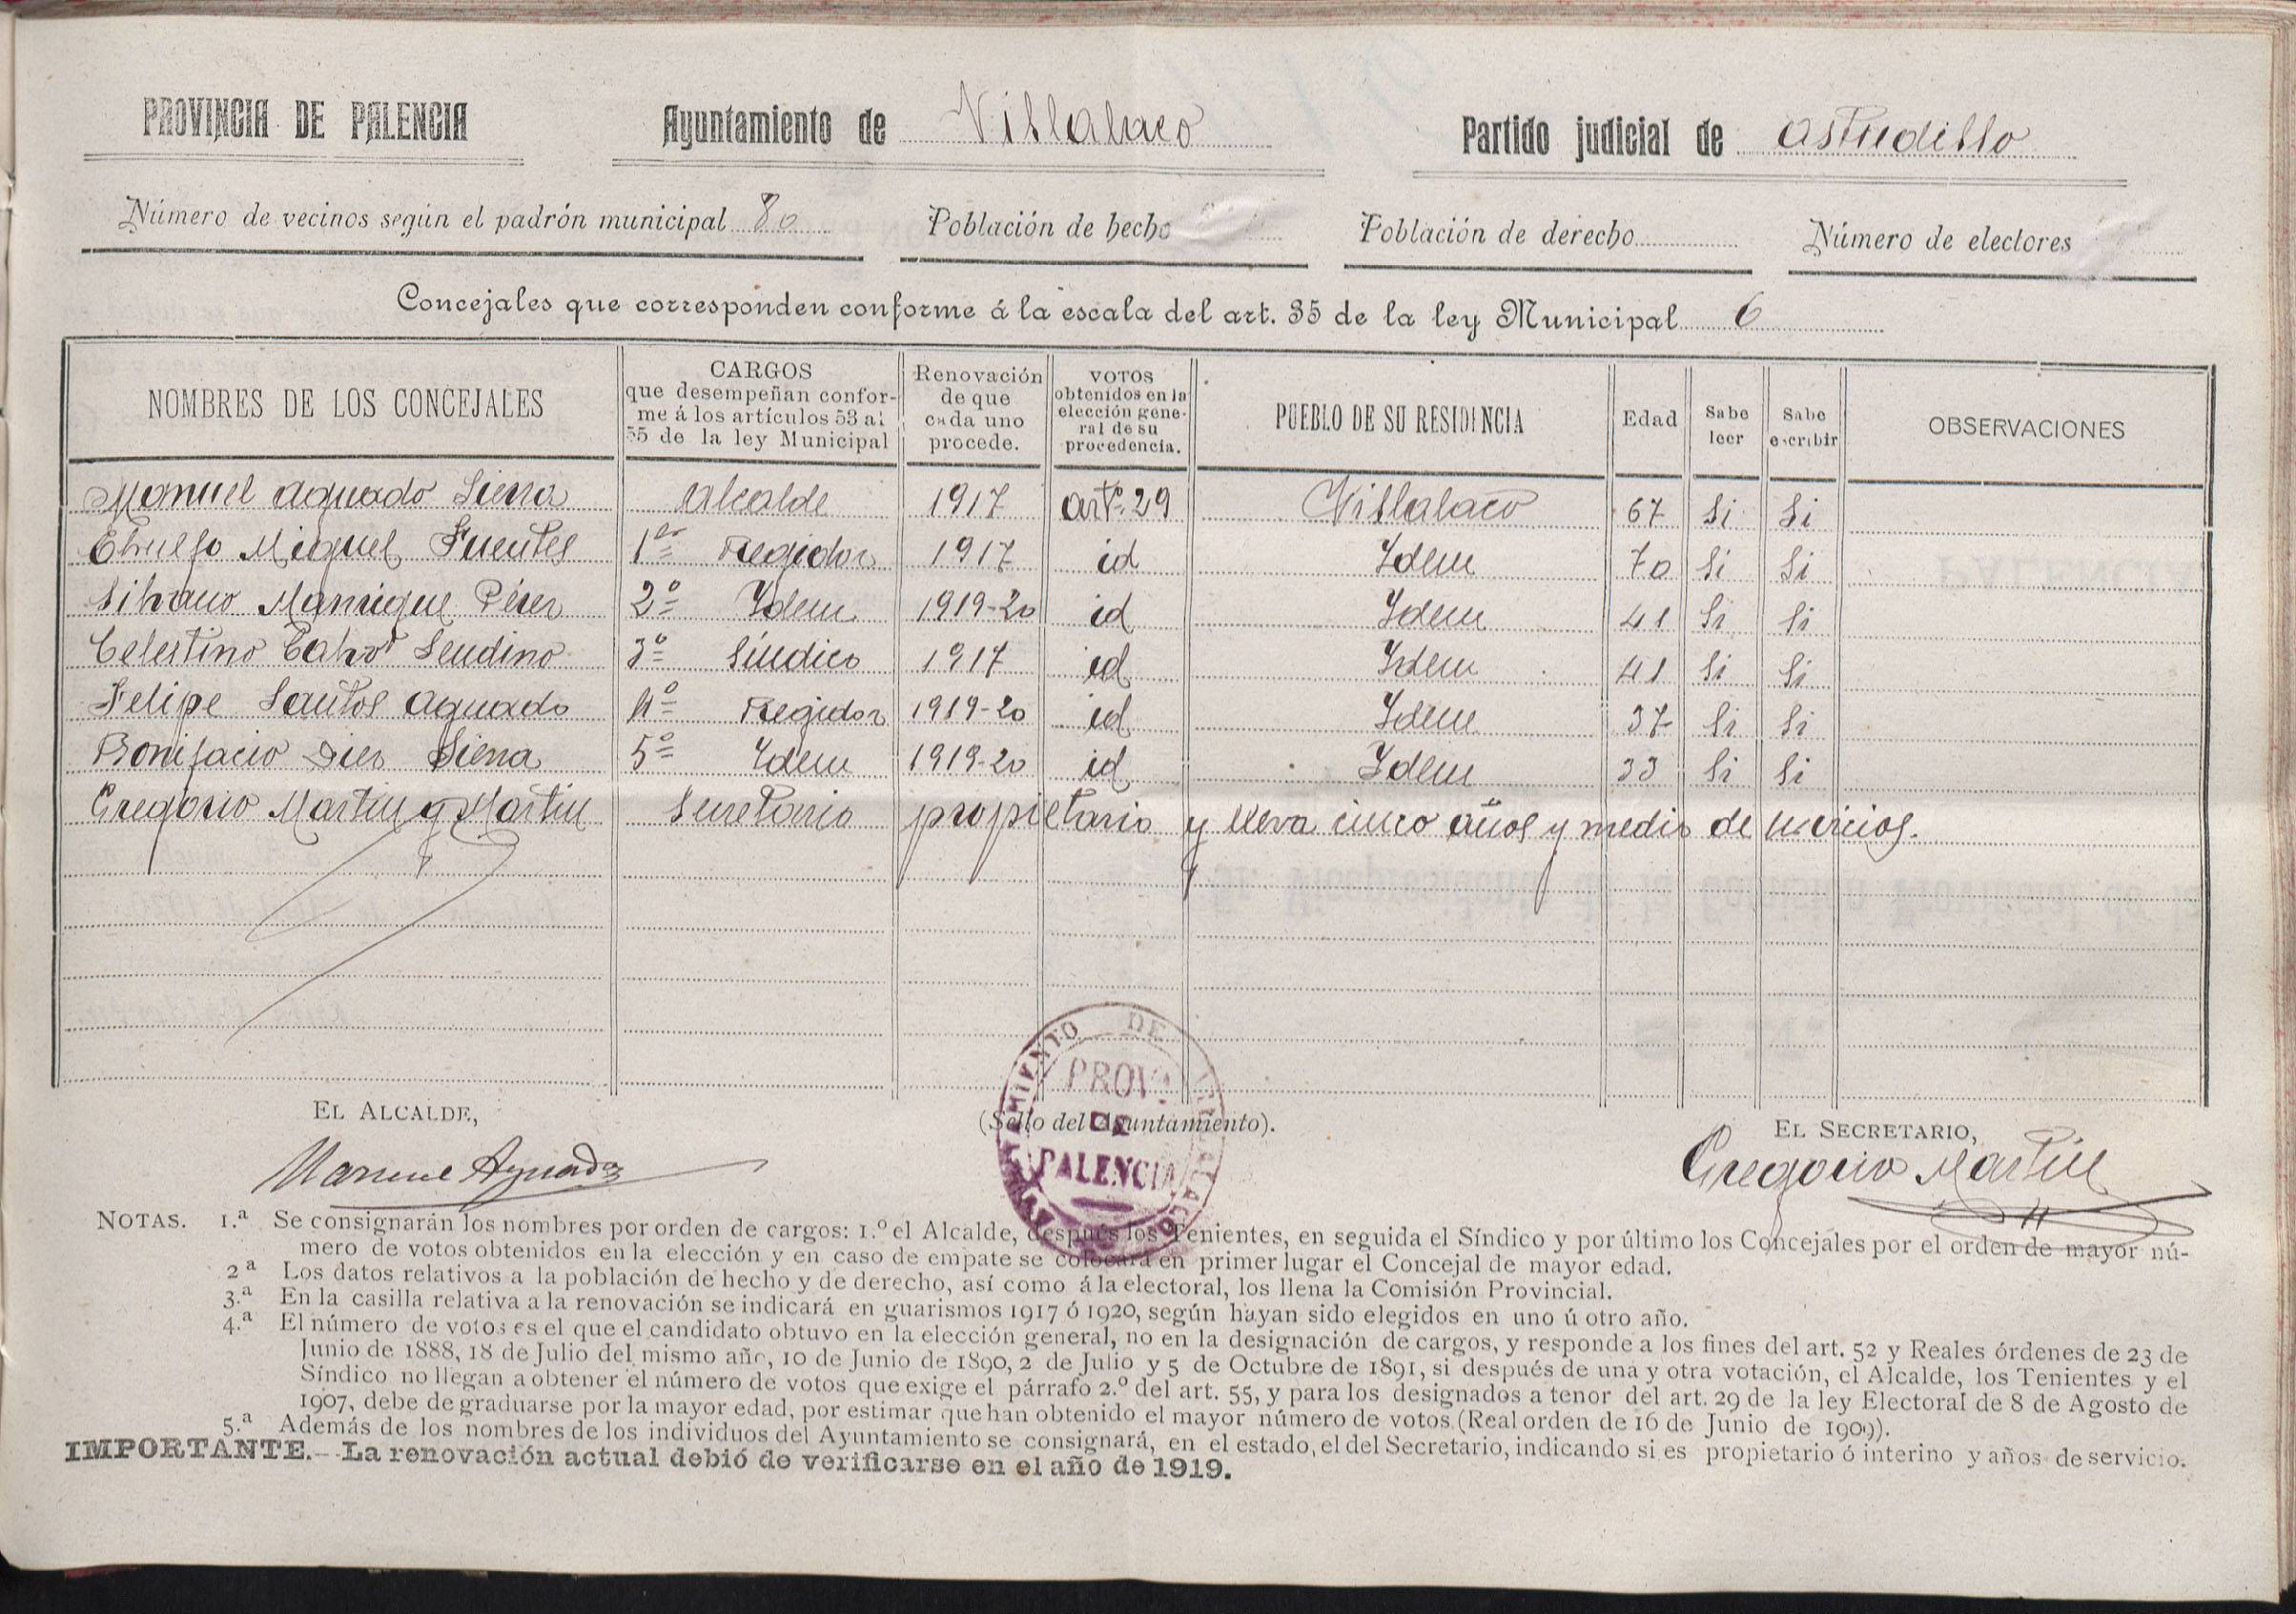 PROVINCIA DE PALENCIA Ayuntamiento de Villalaco Partido judicial de Astudillo
Número de vecinos según el padrón municipal 80 Población de hecho Población de derecho Número de electores
Concejales que corresponden conforme á la escala del art. 35 de la ley Municipal 6
NOMBRES DE LOS CONCEJALES
CARGOS
que desempeñan confor-
me á los artículos 53 al
55 de la ley Municipal
Renovación
de que
cada uno
procede.
VOTOS
obtenidos en la
elección gene-
ral de su
procedencia.
PUEBLO DE SU RESIDENCIA
Edad
Sabe
leer
Sabe
escribir
OBSERVACIONES
Manuel Aguado Sierra Alcalde 1917 artº. 29 Villalaco 67 Si Si
Miguel Fuentes 1er Regidor 1917 id Idem 70 Si Si
Silvano Manrique Pérez 2º Idem 1919-20 id Idem 41 Si Si
Celestino Calvo Sendino 3º Síndico 1917 id Idem 41 Si Si
Felipe Santos Aguado 4º Regidor 1919-20 id Idem 37 Si Si
Bonifacio Diez Sierra 5º Idem 1919-20 id Idem 33 Si Si
Gregorio Martin y Martin Secretario propietario y lleva cinco años y medio de servicios.
EL ALCALDE,
(Sello del Ayuntamiento).
EL SECRETARIO,
Manuel Aguado
Gregorio Martin
AYUNTAMIENTO DE VILLALACO
PROVA
DE
PALENCIA
NOTAS. 1.ª Se consignarán los nombres por orden de cargos: 1.º el Alcalde, después los Tenientes, en seguida el Síndico y por último los Concejales por el orden de mayor nú-
mero de votos obtenidos en la elección y en caso de empate se colocará en primer lugar el Concejal de mayor edad.
2ª Los datos relativos a la población de hecho y de derecho, así como á la electoral, los llena la Comisión Provincial.
3.ª En la casilla relativa a la renovación se indicará en guarismos 1917 ó 1920, según hayan sido elegidos en uno ú otro año.
4.ª El número de votos es el que el candidato obtuvo en la elección general, no en la designación de cargos, y responde a los fines del art. 52 y Reales órdenes de 23 de
Junio de 1888, 18 de Julio del mismo año, 10 de Junio de 1890, 2 de Julio y 5 de Octubre de 1891, si después de una y otra votación, el Alcalde, los Tenientes y el
Síndico no llegan a obtener el número de votos que exige el párrafo 2.º del art. 55, y para los designados a tenor del art. 29 de la ley Electoral de 8 de Agosto de
1907, debe de graduarse por la mayor edad, por estimar que han obtenido el mayor número de votos (Real orden de 16 de Junio de 1909).
5.ª Además de los nombres de los individuos del Ayuntamiento se consignará, en el estado, el del Secretario, indicando si es propietario ó interino y años de servicio.
IMPORTANTE.- La renovación actual debió de verificarse en el año de 1919.